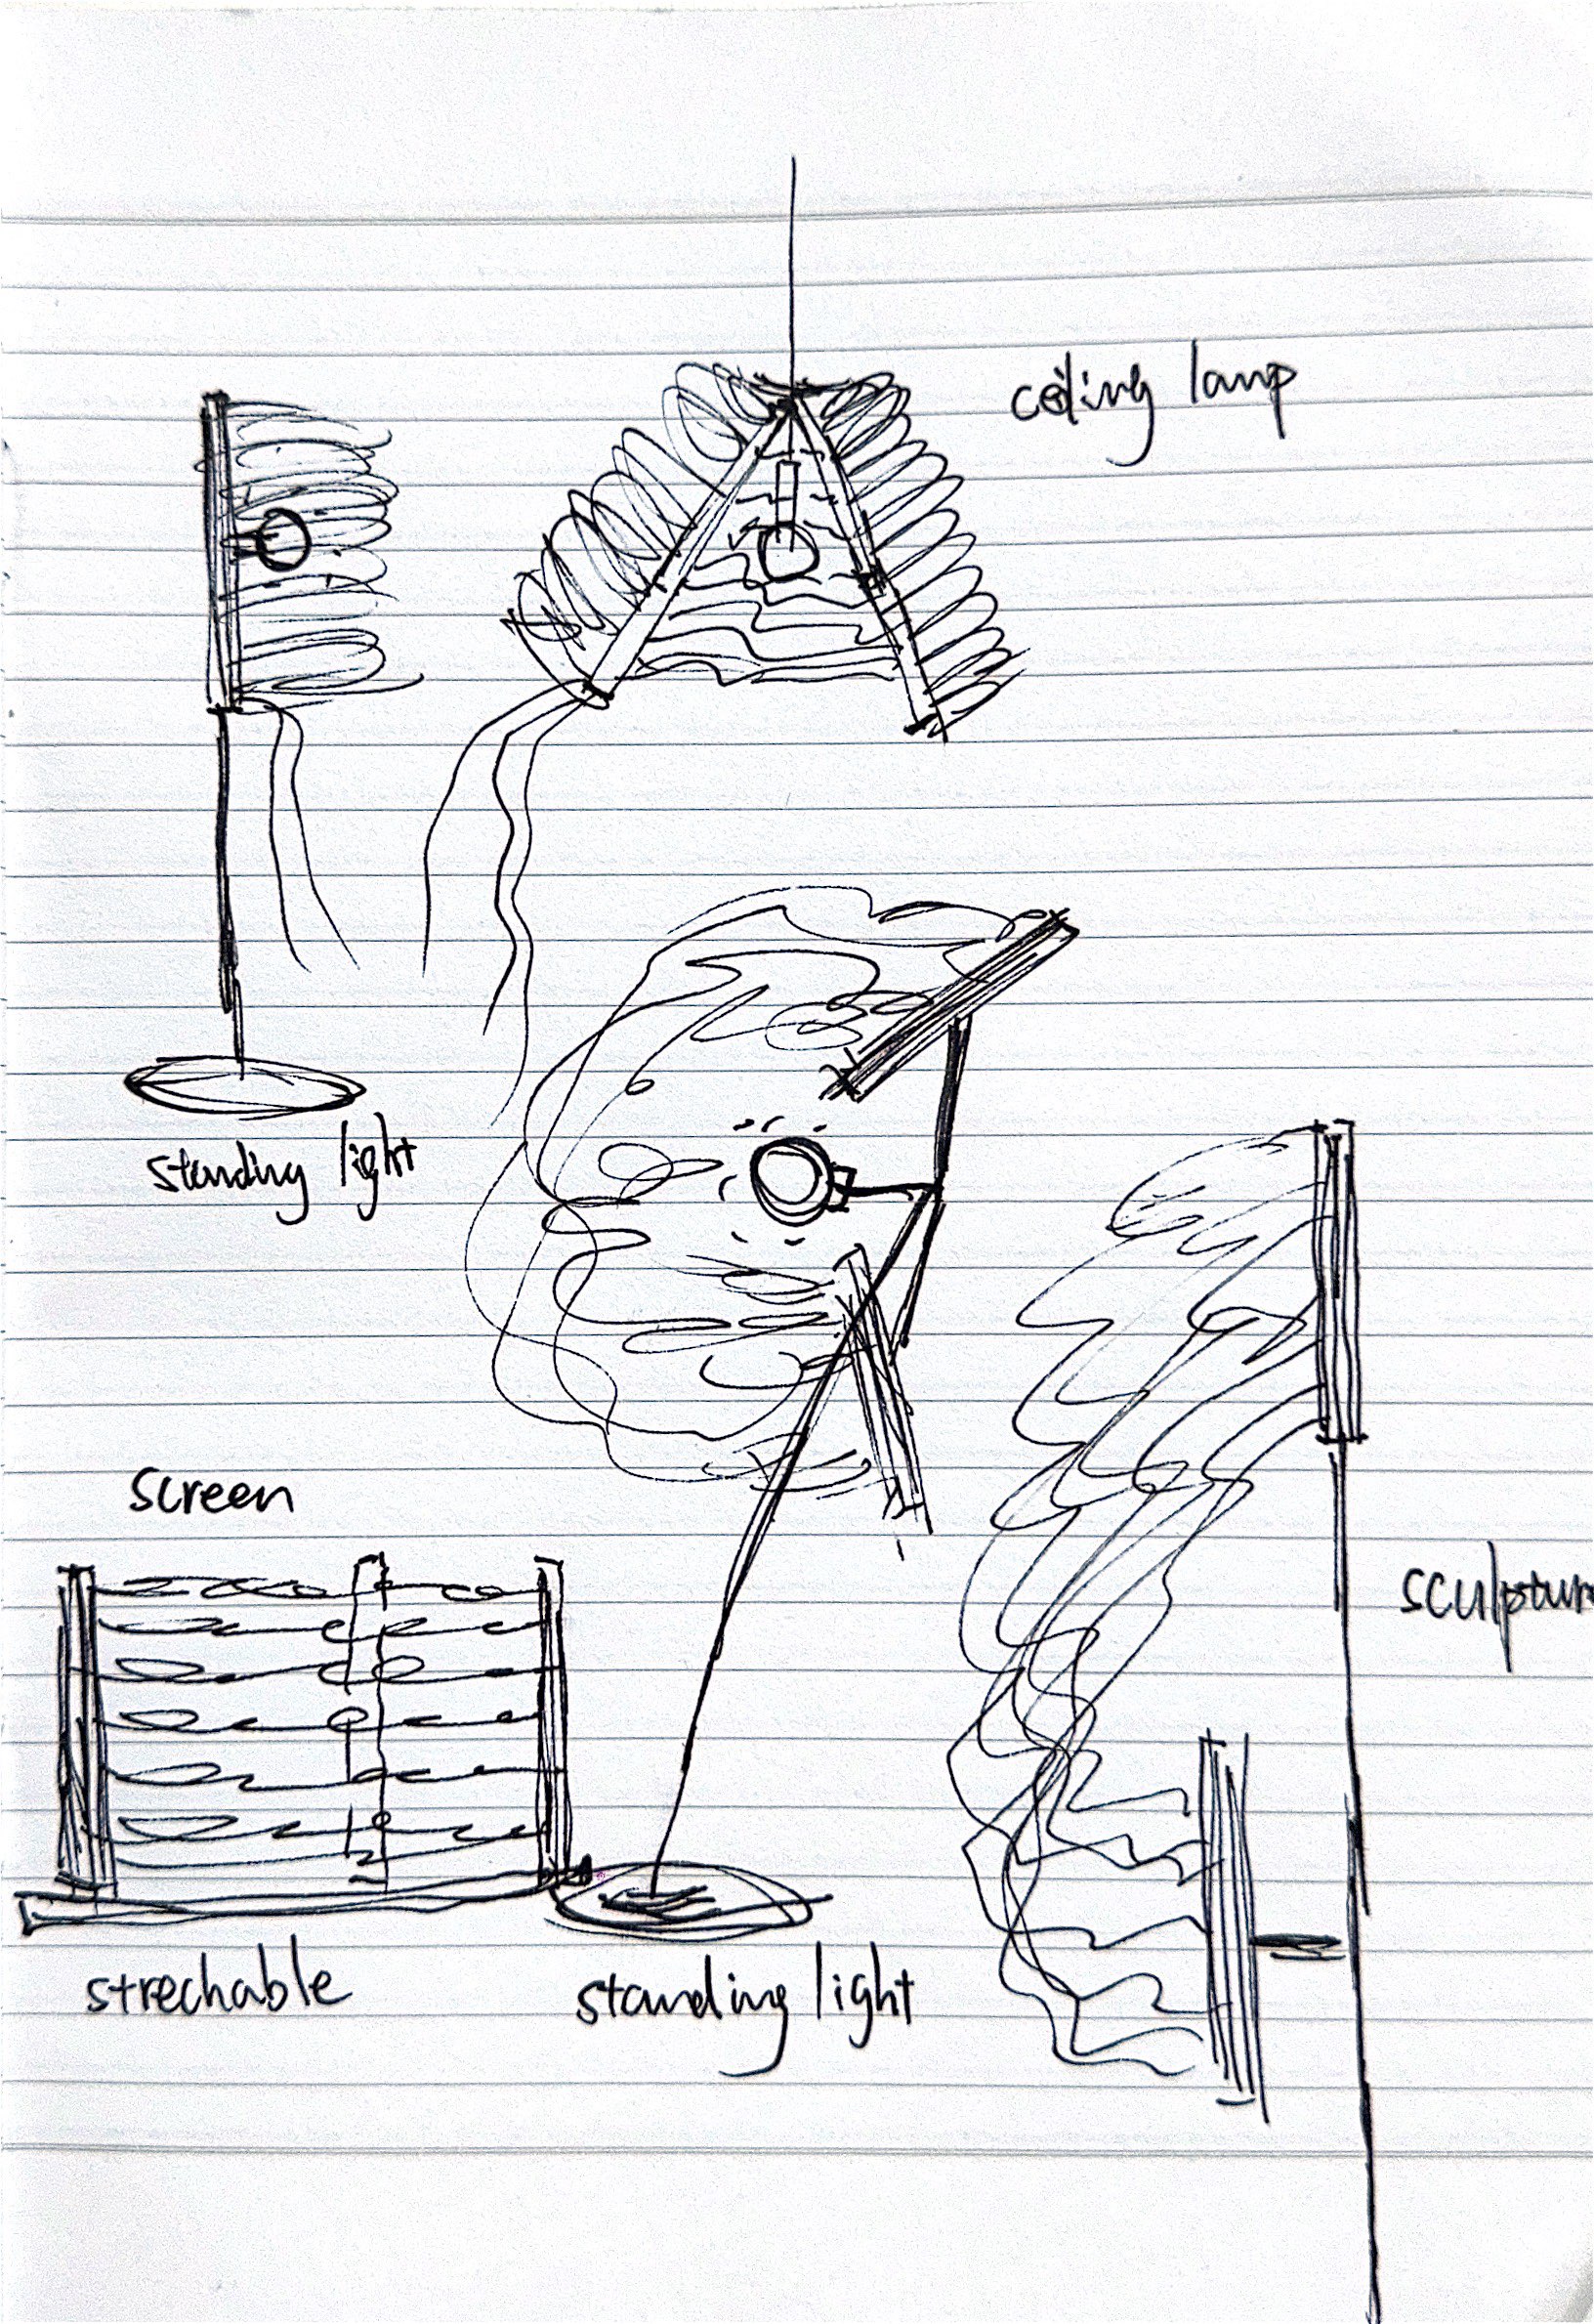 ceiling lamp
standing light
screen
sculptur
strechable
standing light